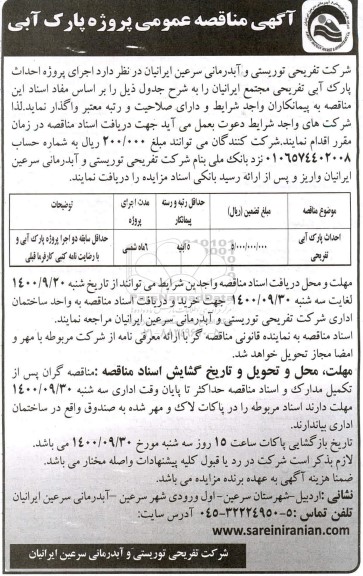 آگهی مناقصه عمومی پروژه پارک آبی
شرکت تفریحی توریستی و آبدرمانی سرعین ایرانیان در نظر دارد اجرای پروژه احداث
پارک آبی تفریحی مجتمع ایرانیان را به شرح جدول ذیل را بر اساس مفاد اسناد این
مناقصه به پیمانکاران واجد شرایط و دارای صلاحیت و رتبه معتبر واگذار نماید.لذا
شرکت های واجد شرایط دعوت بعمل می آید جهت دریافت اسناد مناقصه در زمان
مقرر اقدام نمایند.شرکت کنندگان می توانند مبلغ ۲۰۰/۰۰۰ ریال به شماره حساب
۰۱۰۶۵۷۴۴۰۲۰۰۸ نزد بانک ملی بنام شرکت تفریحی توریستی و آبدرمانی سرعین
ایرانیان واریز و پس از ارائه رسید بانکی اسناد مزایده را دریافت نمایند.
موضوع مناقصه | مبلغ تضمین (ریال) | حداقل رتبه و رسته پیمانکار | مدت اجرای پروژه | توضیحات
احداث پارک آبی و تفریحی | ۵/۰۰۰/۰۰۰/۰۰۰ | ۵ ابنیه | ۶ماه شمسی | حداقل سابقه دو اجرا پروژه پارک آبی و با رضایت نامه کتبی کارفرما قبلی
مهلت و محل دریافت اسناد مناقصه واجدین شرایط می توانند از تاریخ ۱۴۰۰/۹/۲۰
لغایت سه شنبه ۱۴۰۰/۰۹/۳۰ جهت خرید و دریافت اسناد مناقصه به واحد ساختمان
اداری شرکت تفریحی توریستی و آبدرمانی سرعین ایرانیان مراجعه نمایند.
اسناد مناقصه به نماینده قانونی مناقصه گر با ارائه معرفی نامه از شرکت مربوطه با مهر و
امضا مجاز تحویل خواهد شد.
مهلت، محل و تحویل و تاریخ گشایش اسناد مناقصه :مناقصه گران پس از
تکمیل مدارک و اسناد مناقصه حداکثر تا پایان وقت اداری سه شنبه ۱۴۰۰/۰۹/۳۰
مهلت دارند اسناد مربوطه را در پاکات لاک و مهر شده به صندوق واقع در ساختمان
اداری بیاندازند.
تاریخ بازگشایی پاکات ساعت ۱۵ روز سه شنبه مورخ ۱۴۰۰/۰۹/۳۰ می باشد.
لازم بذکر است شرکت در رد یا قبول کلیه پیشنهادات واصله مختار می باشد.
ضمنا هزینه آگهی به عهده برنده مزایده می باشد.
نشانی :اردبیل-شهرستان سرعین-اول ورودی شهر سرعین -آبدرمانی سرعین ایرانیان
تلفن تماس :۵-۳۲۲۲۴۹۵۰-۰۴۵ آدرس سایت:
www.sareiniranian.com
شرکت تفریحی توریستی و آبدرمانی سرعین ایرانیان